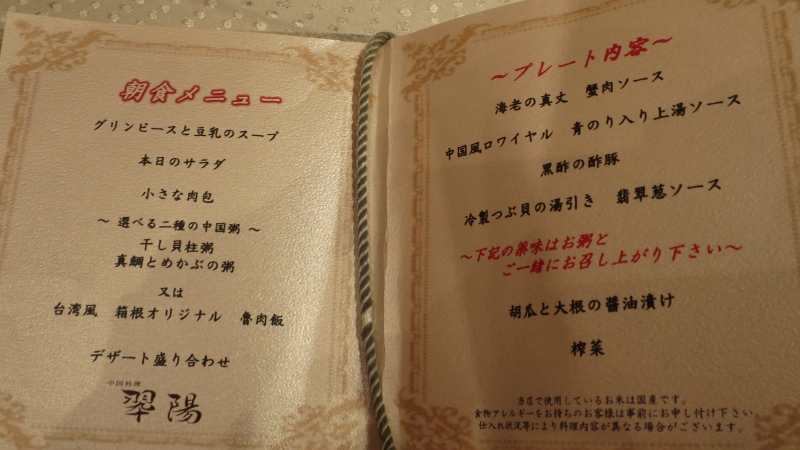 朝食メニュー
グリンピースと豆乳のスープ
本日のサラダ
小さな肉包
～ 選べる二種の中国粥 ～
干し貝柱粥
真鯛とめかぶの粥
又は
台湾風　箱根オリジナル　魯肉飯
デザート盛り合わせ
中国料理
翠陽
～プレート内容～
海老の真丈　蟹肉ソース
中国風ロワイヤル　青のり入り上湯ソース
黒酢の酢豚
冷製つぶ貝の湯引き　翡翠葱ソース
～下記の薬味はお粥と
ご一緒にお召し上がり下さい～
胡瓜と大根の醤油漬け
搾菜
当店で使用しているお米は国産です。
食物アレルギーをお持ちのお客様は事前にお申し付け下さい。
仕入れ状況等により料理内容が異なる場合がございます。